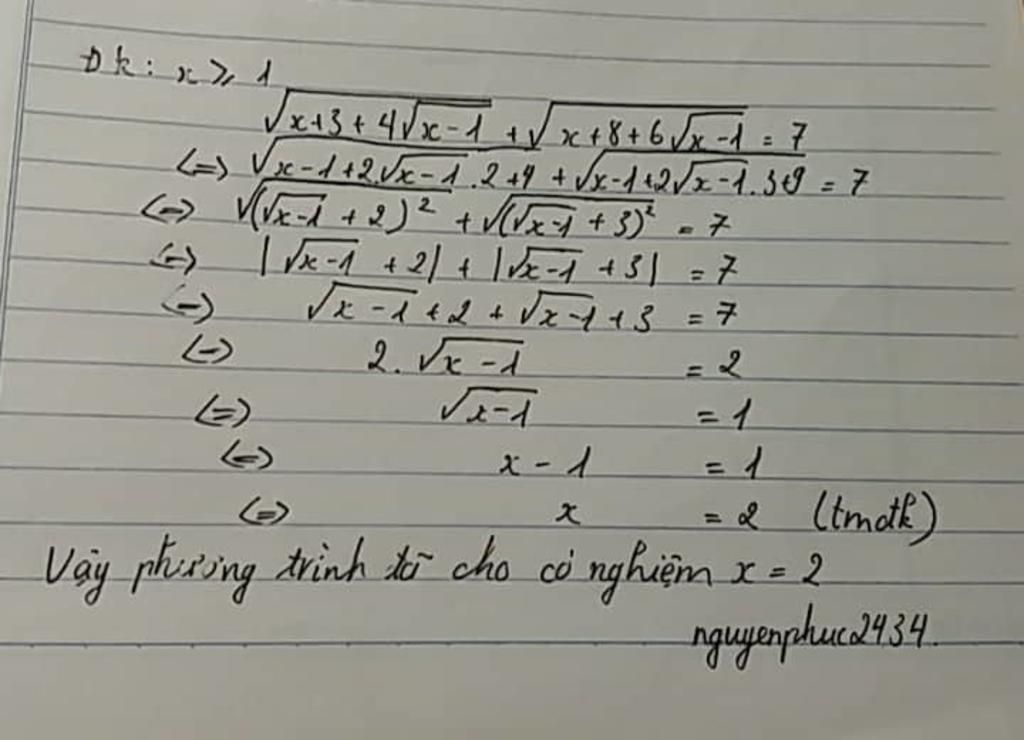 Đk: x ≥ 1
√(x+3+4√(x-1)) + √(x+8+6√(x-1)) = 7
<=> √(x-1+2.√(x-1).2+4) + √(x-1+2√(x-1).3+9) = 7
<=> √((√(x-1)+2)²) + √((√(x-1)+3)²) = 7
<=> |√(x-1)+2| + |√(x-1)+3| = 7
<=> √(x-1)+2+√(x-1)+3 = 7
<=> 2.√(x-1) = 2
<=> √(x-1) = 1
<=> x-1 = 1
<=> x = 2 (tmđk)
Vậy phương trình đã cho có nghiệm x = 2
nguyenphuc2434.